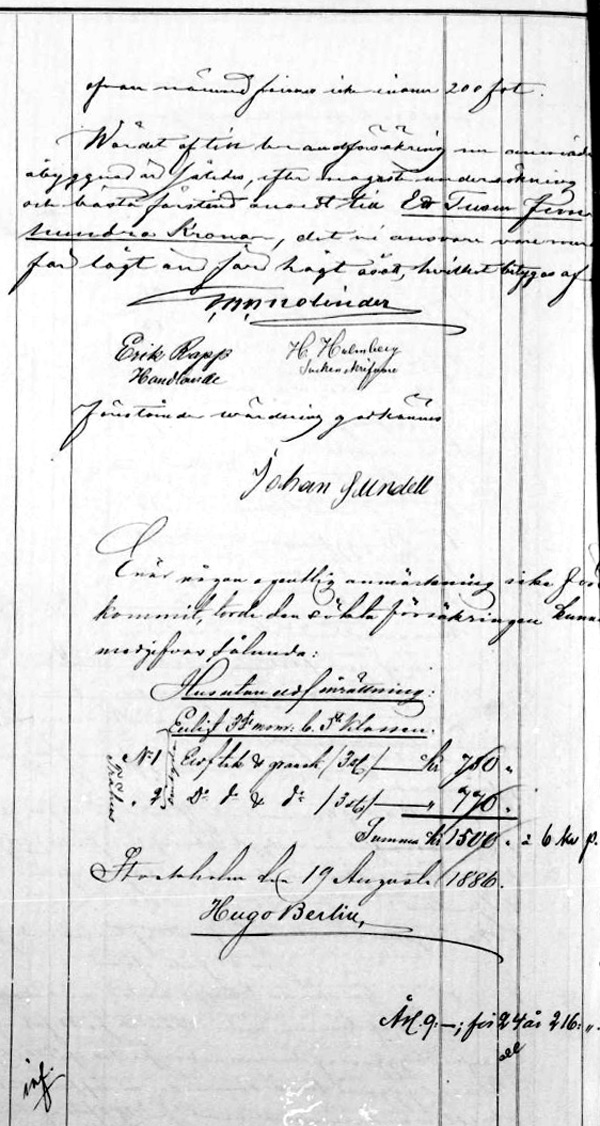 ofvan nämnd finnes icke inom 200 fot.
Wärdet af till brandförsäkring nu anmäld
åbyggnad är således, efter noggrann undersökning
och bästa förstånd ansedt till Ett Tusen Fem
hundra Kronor, det vi ansvara vara
för lågt än för högt åsatt, hvilket betygas af
Erik Rapp H. Holmberg
Handlande Sockenskrifvare
Förestående wärdering godkännes
Johan Sundell
Enär någon egentlig anmärkning icke före
kommit, torde den sökta försäkringen kunna
medgifvas sålunda:
Hus utan eldinrättning:
Enligt mom. b. 5te Klassen.
No 1 Kr 730 "
" 2. Do do & do " 770 "
Summa Kr 1500 " a 6 Kr p.
Stockholm den 19 Augusti 1886.
Hugo Berlin,
Årl. 9:—; för 24 år 216: "
inf.